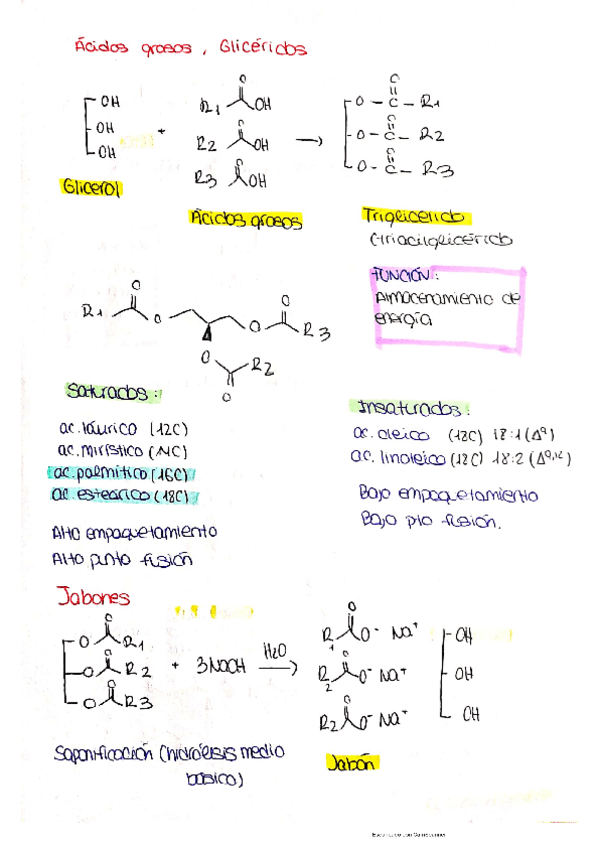 Ácidos grasos, Glicéridos
OH
OH
OH
+
R1 O OH
R2 O OH
R3 O OH
→
O
O - C - R1
O
O - C - R2
O
O - C - R3
Glicerol
Ácidos grasos
Triglicérido
(triacilglicérido
FUNCIÓN:
Almacenamiento de
energía
R1 O O O O R3
O R2
O
Saturados:
ac. láurico (12C)
ac. mirístico (14C)
ac. palmítico (16C)
ac. esteárico (18C)
Alto empaquetamiento
Alto punto fusión
Insaturados:
ac. oleico (18C) 18:1 (Δ9)
ac. linoleico (18C) 18:2 (Δ9,12)
Bajo empaquetamiento
Bajo pto fusión.
Jabones
O O R1
O O R2
O O R3
+ 3NaOH H2O →
R1 O O- Na+
R2 O O- Na+
R2 O O- Na+
OH
OH
OH
Saponificación (hidrólisis medio
básico)
Jabón
Escaneado con CamScanner